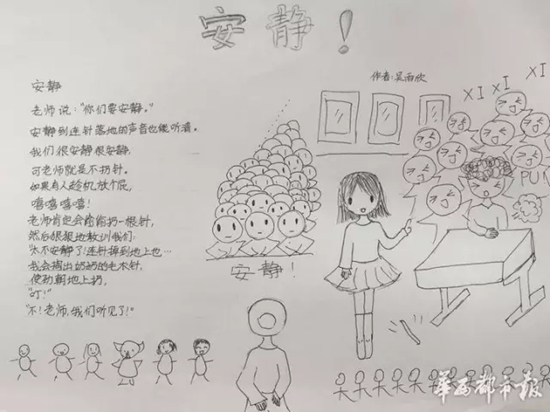 安静！
作者:吴雨欣
安静
老师说:"你们要安静。"
安静到连针落地的声音也能听清。
我们很安静很安静,
可老师就是不扔针。
如果有人趁机放个屁,
嘻嘻嘻嘻!
老师肯定会偷偷扔一根针,
然后狠狠地教训我们:
"太不安静了!连针掉到地上也…
我会掏出奶奶的毛衣针,
使劲朝地上扔,
"叮!"
"不!老师,我们听见了!"
安静!
XI
XI
XI
PU!
华西都市报